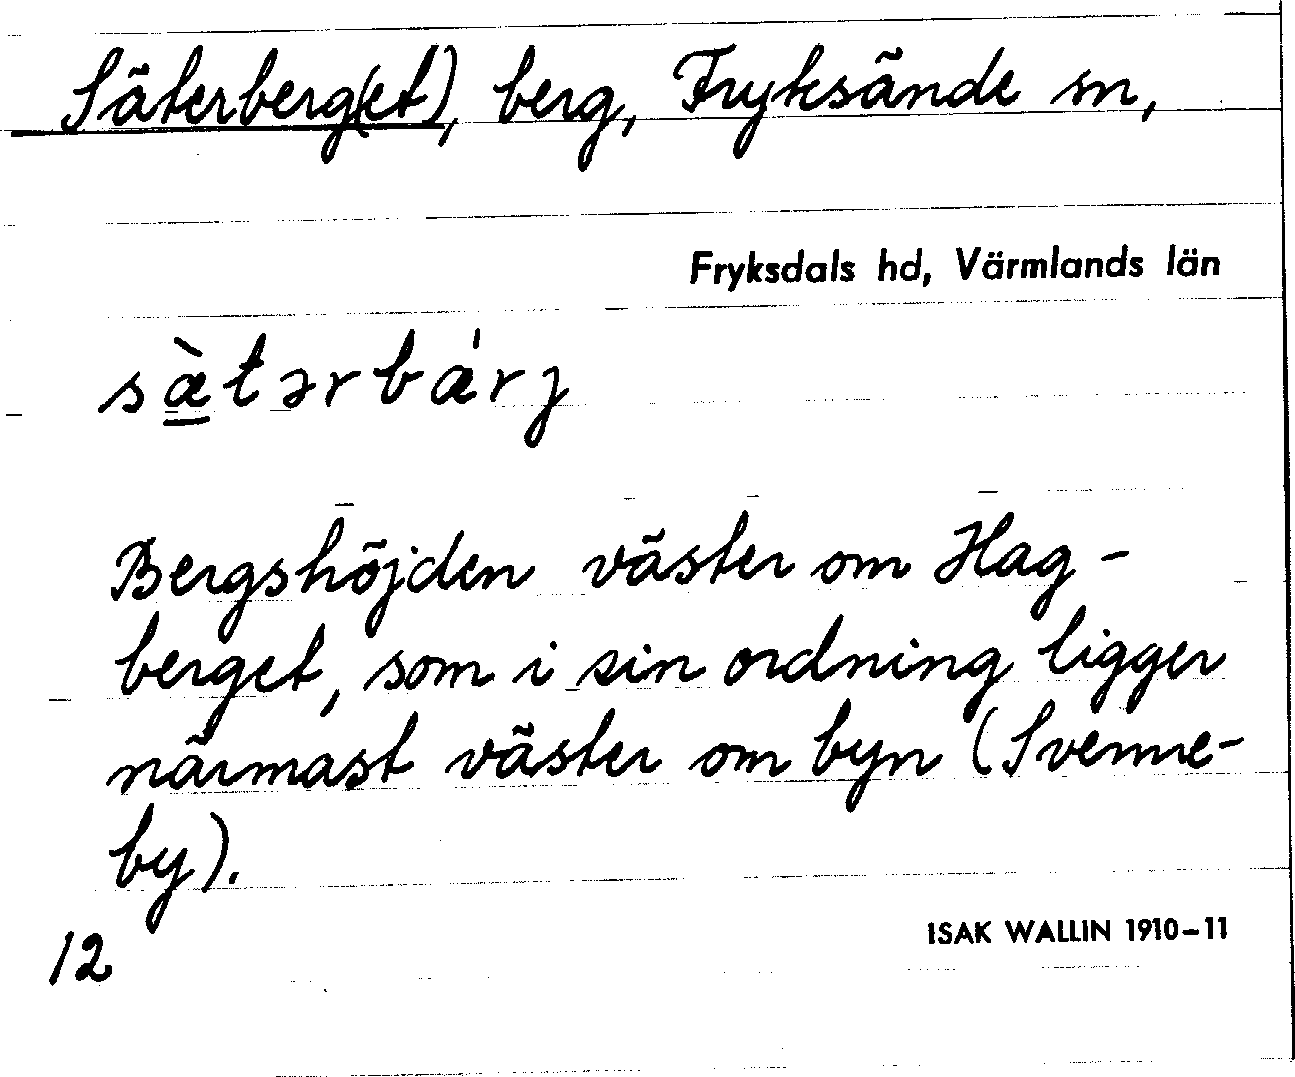 Säterberg(et), berg, Fryksände sn,
Fryksdals hd, Värmlands län
sæ̀tərbæ'rj
Bergshöjden väster om Hag-
berget, som i sin ordning ligger
närmast väster om byn (Svenne-
by).
12
ISAK WALLIN 1910-11